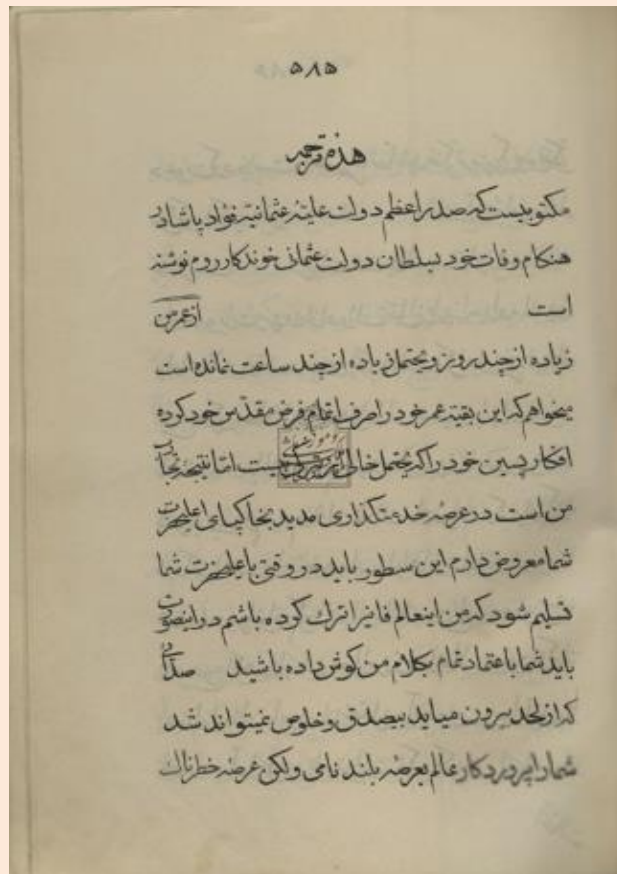 ۵۸۵
هذه ترجمه
مکتوبیست که صدر اعظم دولت علیّه عثمانیّه فؤاد پاشا در
هنکام وفات خود بسلطان دولت عثمانی خوندکار روم نوشته
است از عمر من
زیاده از چند روز و یحتمل زیاده از چند ساعت نمانده است
میخواهم که این بقیّه عمر خود را صرف اتمام فرض مقدّس خود کرده
افکار پسین خود را که یحتمل خالی از نیست امّا نتیجه تجارب
من است در عرضه خدمتکذاری مدید بخاکپای اعلیحضرت
شما معروض دارم این سطور باید در وقتی باعلیحضرت شما
تسلیم شود که من اینعالم فانیرا ترک کرده باشم در اینصورت
باید شما باعتماد تمام بکلام من کوش داده باشید صدائی
که از لحد بیرون میاید بیصدق و خلوص نمیتواند شد
شما را پروردکار عالم بعرضه بلند نامی ولکن عرضه خطرناک